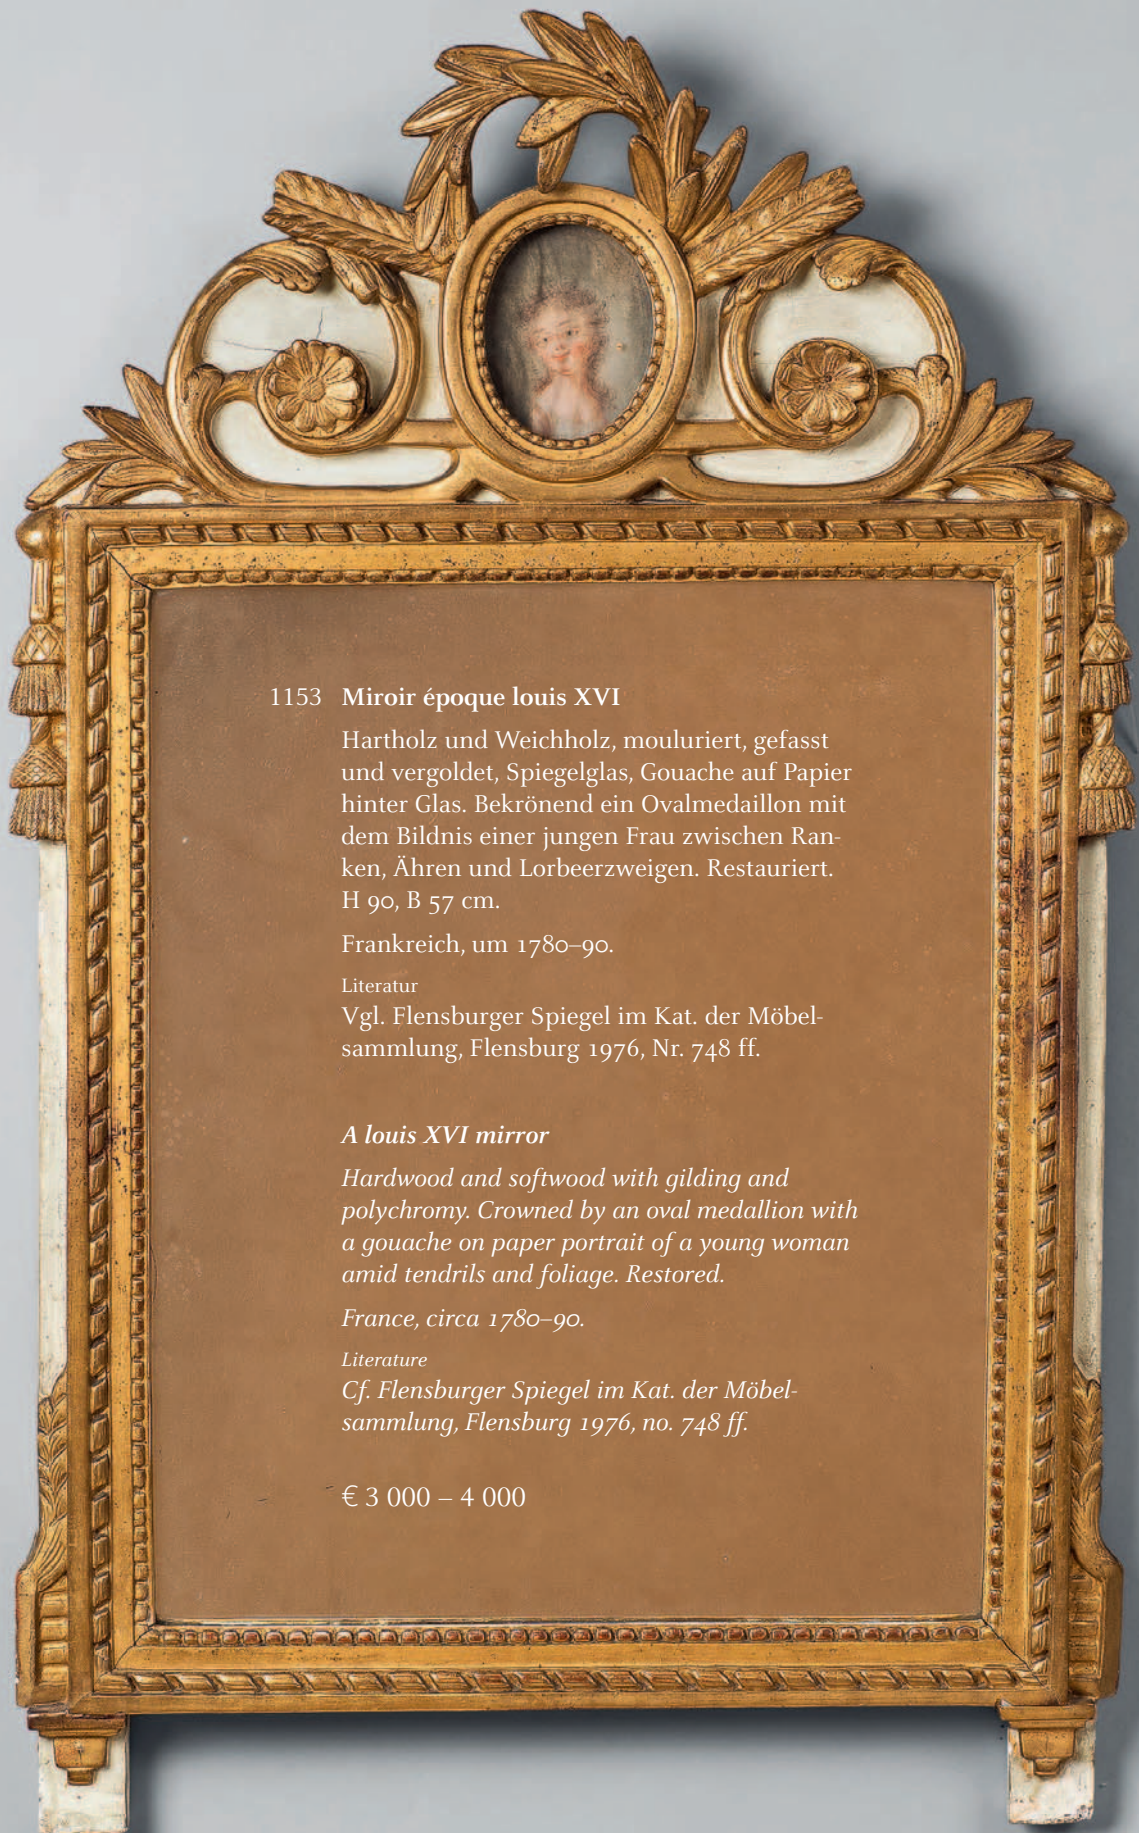 1153 Miroir époque louis XVI
Hartholz und Weichholz, mouluriert, gefasst
und vergoldet, Spiegelglas, Gouache auf Papier
hinter Glas. Bekrönend ein Ovalmedaillon mit
dem Bildnis einer jungen Frau zwischen Ran-
ken, Ähren und Lorbeerzweigen. Restauriert.
H 90, B 57 cm.
Frankreich, um 1780–90.
Literatur
Vgl. Flensburger Spiegel im Kat. der Möbel-
sammlung, Flensburg 1976, Nr. 748 ff.
A louis XVI mirror
Hardwood and softwood with gilding and
polychromy. Crowned by an oval medallion with
a gouache on paper portrait of a young woman
amid tendrils and foliage. Restored.
France, circa 1780–90.
Literature
Cf. Flensburger Spiegel im Kat. der Möbel-
sammlung, Flensburg 1976, no. 748 ff.
€ 3 000 – 4 000